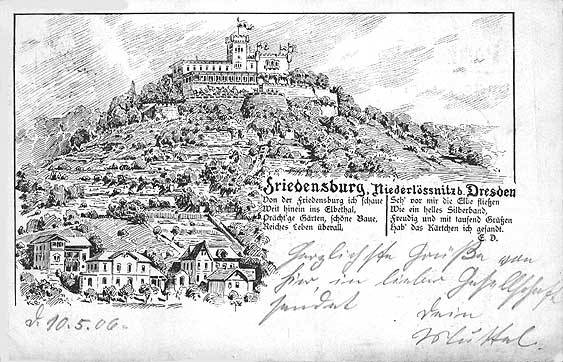 Friedensburg, Niederlössnitz b. Dresden
Von der Friedensburg ich schaue
Weit hinein ins Elbethal,
Prächt'ge Gärten, schöne Baue,
Reiches Leben überall.
Seh' vor mir die Elbe fließen
Wie ein helles Silberband,
Freudig und mit tausend Grüßen
Hab' das Kärtchen ich gesandt.
E. D.
Herzlichste Grüße von
hier in lieber Gesellschaft
sendet Dein
d. 10.5.06.